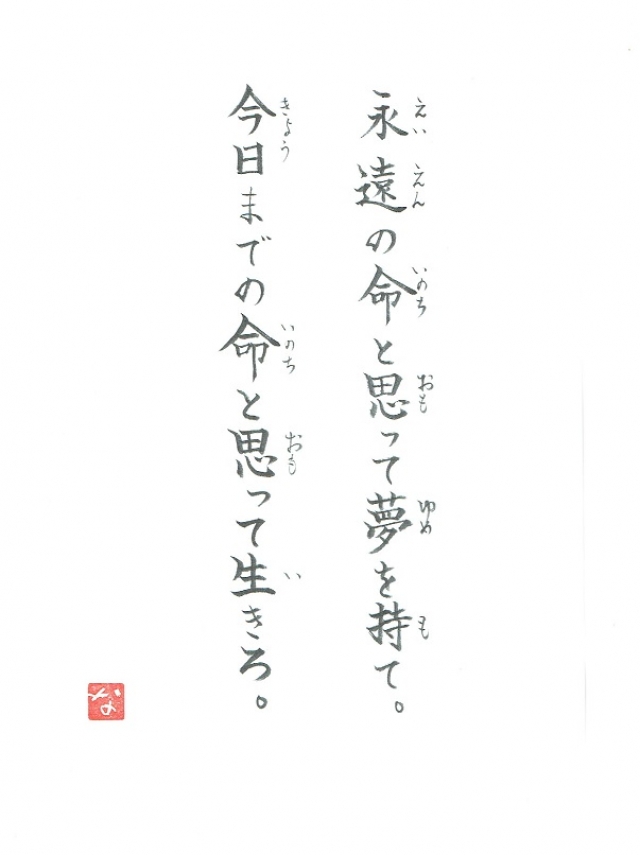 永遠の命と思って夢を持て。
えいえん いのち おも ゆめ も
今日までの命と思って生きろ。
きょう いのち おも い